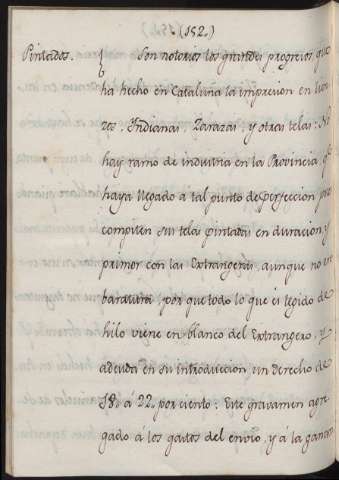 .(152.)
Pintados. Son notorios los grandes progresos, que
ha hecho en Cataluña la impresion en lien
zos, Indianas, Zarazas, y otras telas: No
hay ramo de industria en la Provincia qe
haya llegado a tal punto de perfeccion, pues
compiten sus telas pintadas en duracion, y
primor con las Extrangeras, aunque no en
baratura, por que todo lo que es tegido de
hilo viene en blanco del Extrangero, y
adeuda en su introduccion un derecho de
18,, á 22,, por ciento: Este gravamen agre
gado á los gastos del envio, y á la ganan